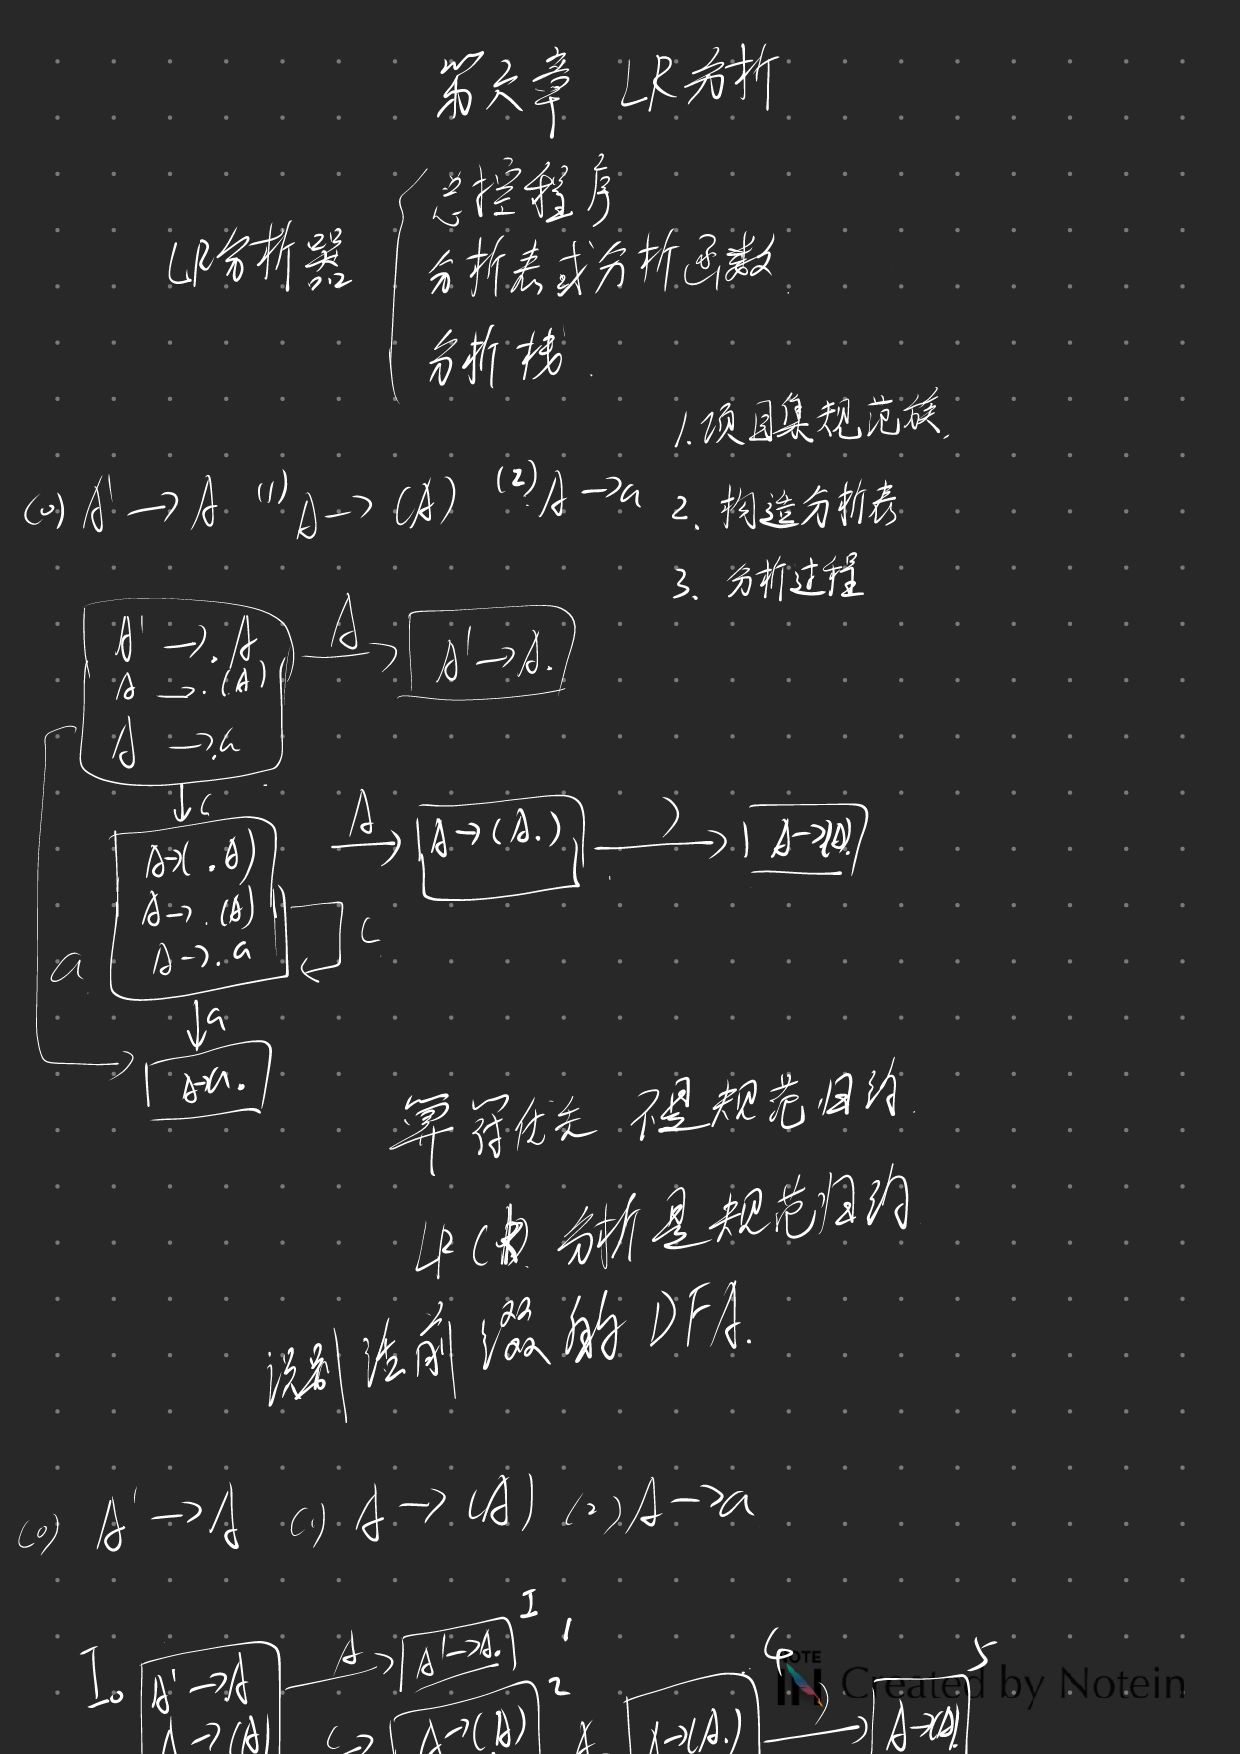 第六章 LR分析
LR分析器
总控程序
分析表或分析函数
分析栈.
1.项目集规范族.
2、构造分析表
3、分析过程
(0) A' → A (1) A → (A) (2) A → a
A' → . A
A → . (A)
A → . a
A
A' → A.
(
A → ( . A)
A → . (A)
A → . a
A
A → (A.)
)
A → (A).
(
a
a
A → a.
算符优先 不是规范归约.
LR 分析是规范归约
识别活前缀的DFA.
(0) A' → A (1) A → (A) (2) A → a
I0
A' → A
A → (A)
A
A' → A.
I1
(
A → (A)
2
A → (A.)
4
)
A → (A).
5
NOTE
IN
Created by Notein